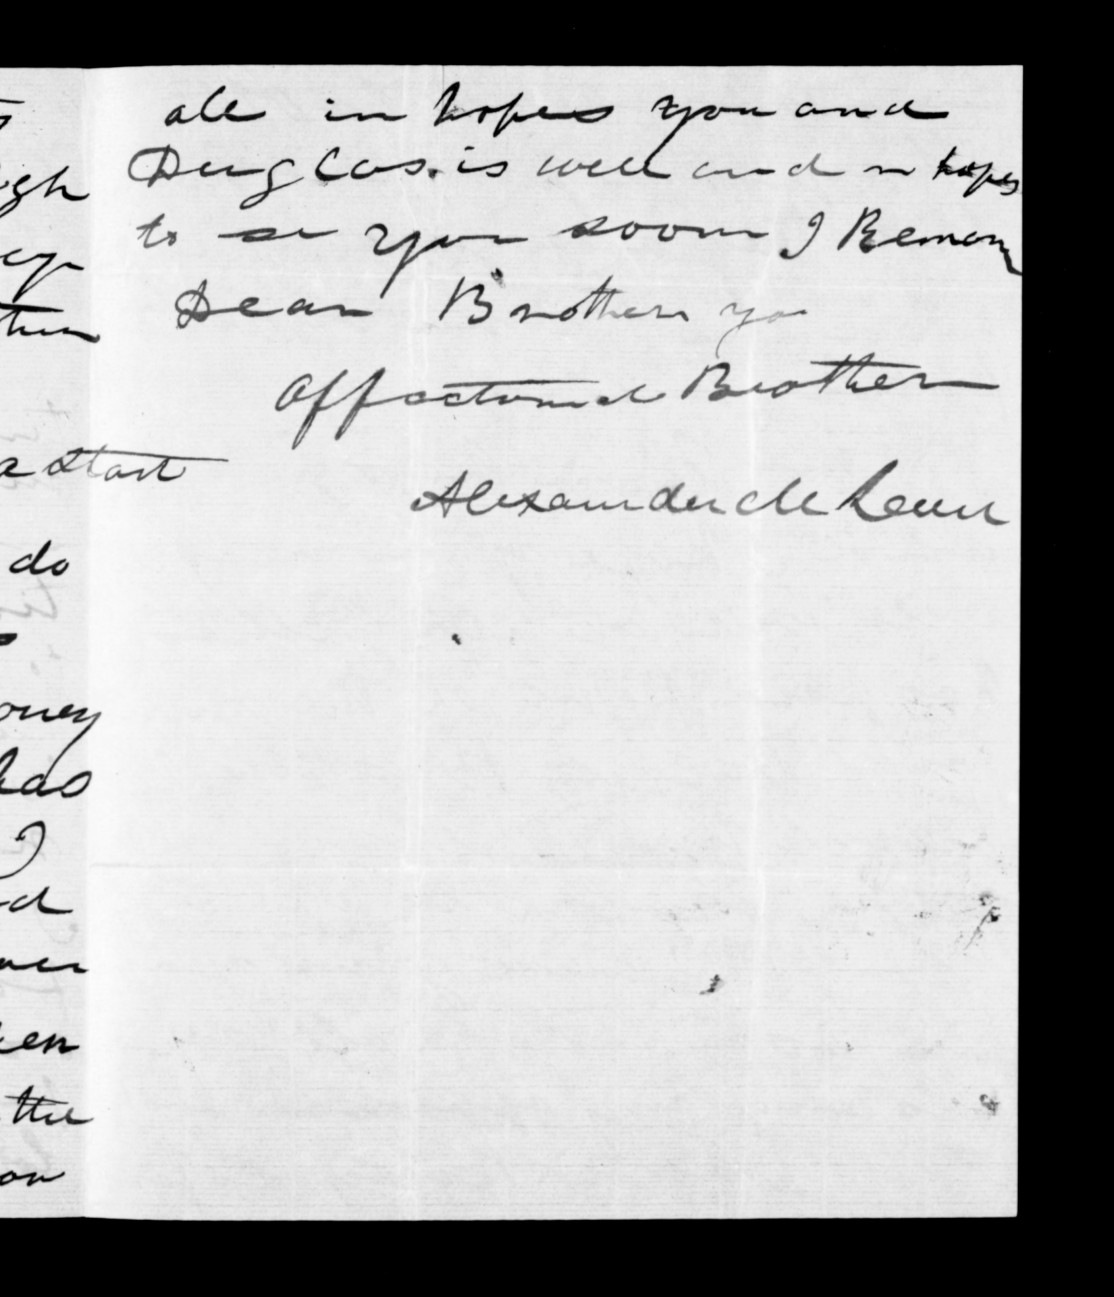 all in hopes you and
Duglas. is well and in hopes
to se you soon I Reman
Dear Brother yo
Affectunid Brother
Alexander Mc Lean
a start
do
oney
has
I
d
ver
ken
the
on